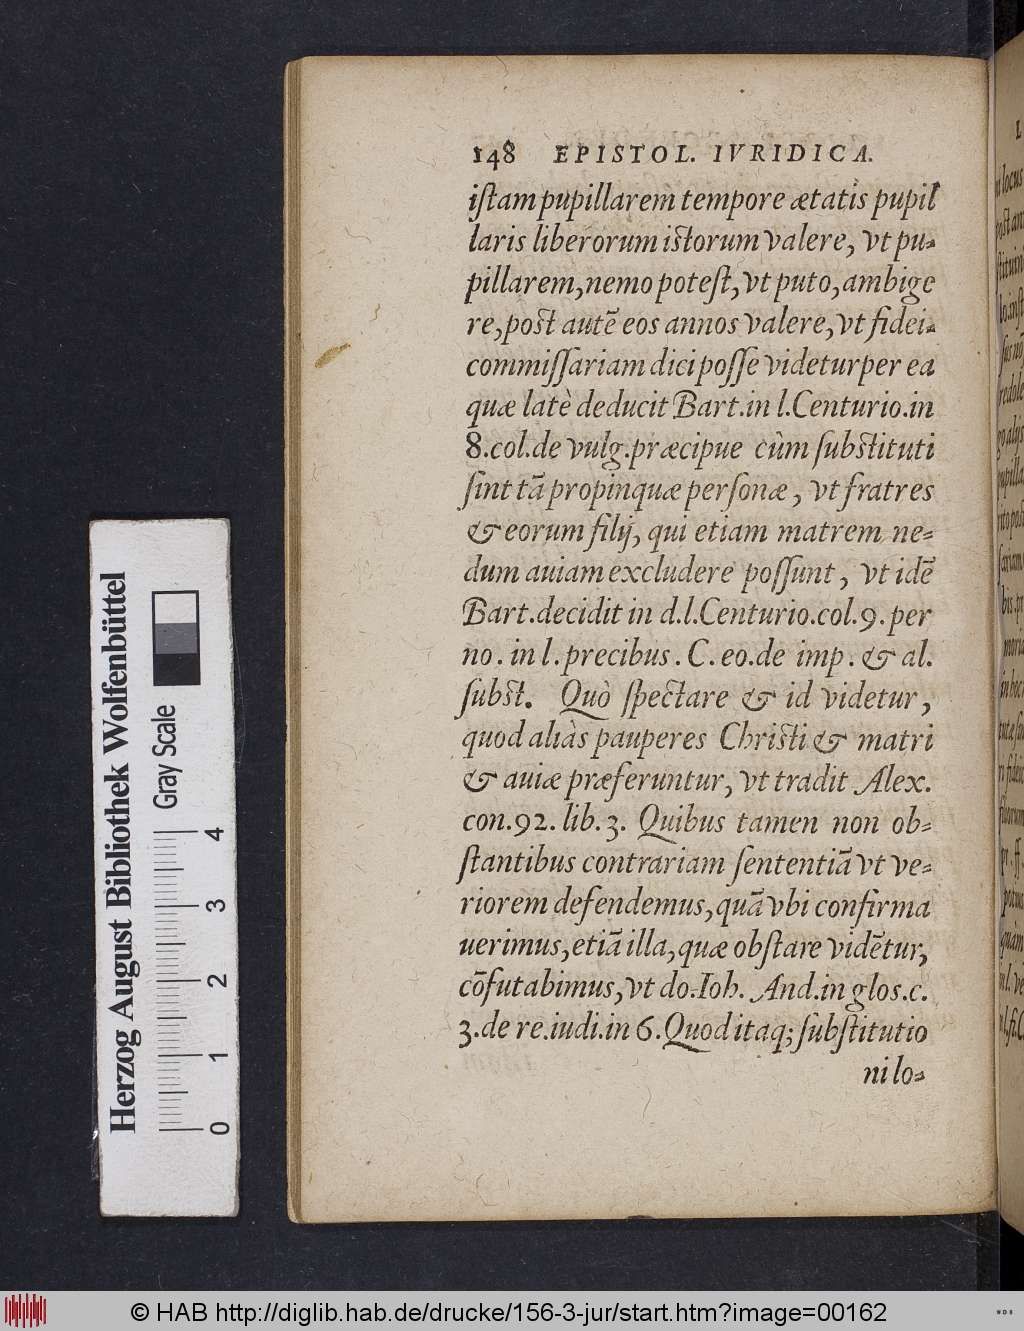 148 EPISTOL. IVRIDICA.
iſtam pupillarem tempore ætatis pupil
laris liberorum istorum valere, vt pu-
pillarem, nemo poteſt, vt puto, ambige
re, post autē eos annos valere, vt fidei-
commiſſariam dici poſſe videtur per ea
quæ latè deducit Bart. in l. Centurio. in
8. col. de vulg. præcipue cùm ſubstituti
ſint tā propinquæ perſonæ, vt fratres
& eorum filij, qui etiam matrem ne-
dum auiam excludere poſſunt, vt idē
Bart. decidit in d. l. Centurio. col. 9. per
no. in l. precibus. C. eo. de imp. & al.
ſubst. Quò ſpectare & id videtur,
quod aliàs pauperes Christi & matri
& auiæ præferuntur, vt tradit Alex.
con. 92. lib. 3. Quibus tamen non ob-
ſtantibus contrariam ſententiā vt ve-
riorem defendemus, quā vbi confirma
uerimus, etiā illa, quæ obſtare vidētur,
cōfutabimus, vt do. Ioh. And. in glos. c.
3. de re. iudi. in 6. Quod itaq; ſubſtitutio
ni lo-
Herzog August Bibliothek Wolfenbüttel
Gray Scale
0 1 2 3 4
© HAB http://diglib.hab.de/drucke/156-3-jur/start.htm?image=00162